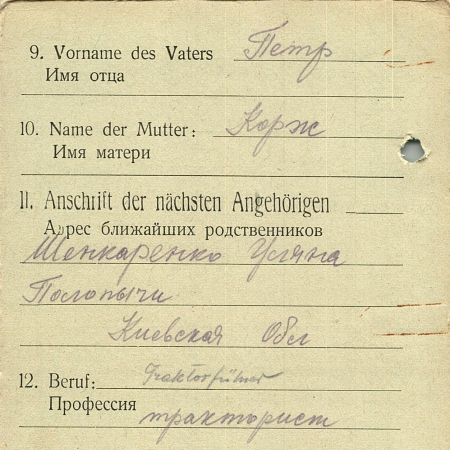 9. Vorname des Vaters Петр
Имя отца
10. Name der Mutter: Корж
Имя матери
11. Anschrift der nächsten Angehörigen
Адрес ближайших родственников
Шенкаренко Уляна
Полопычи
Киевская Обл
12. Beruf: Traktorführer
Профессия тракторист